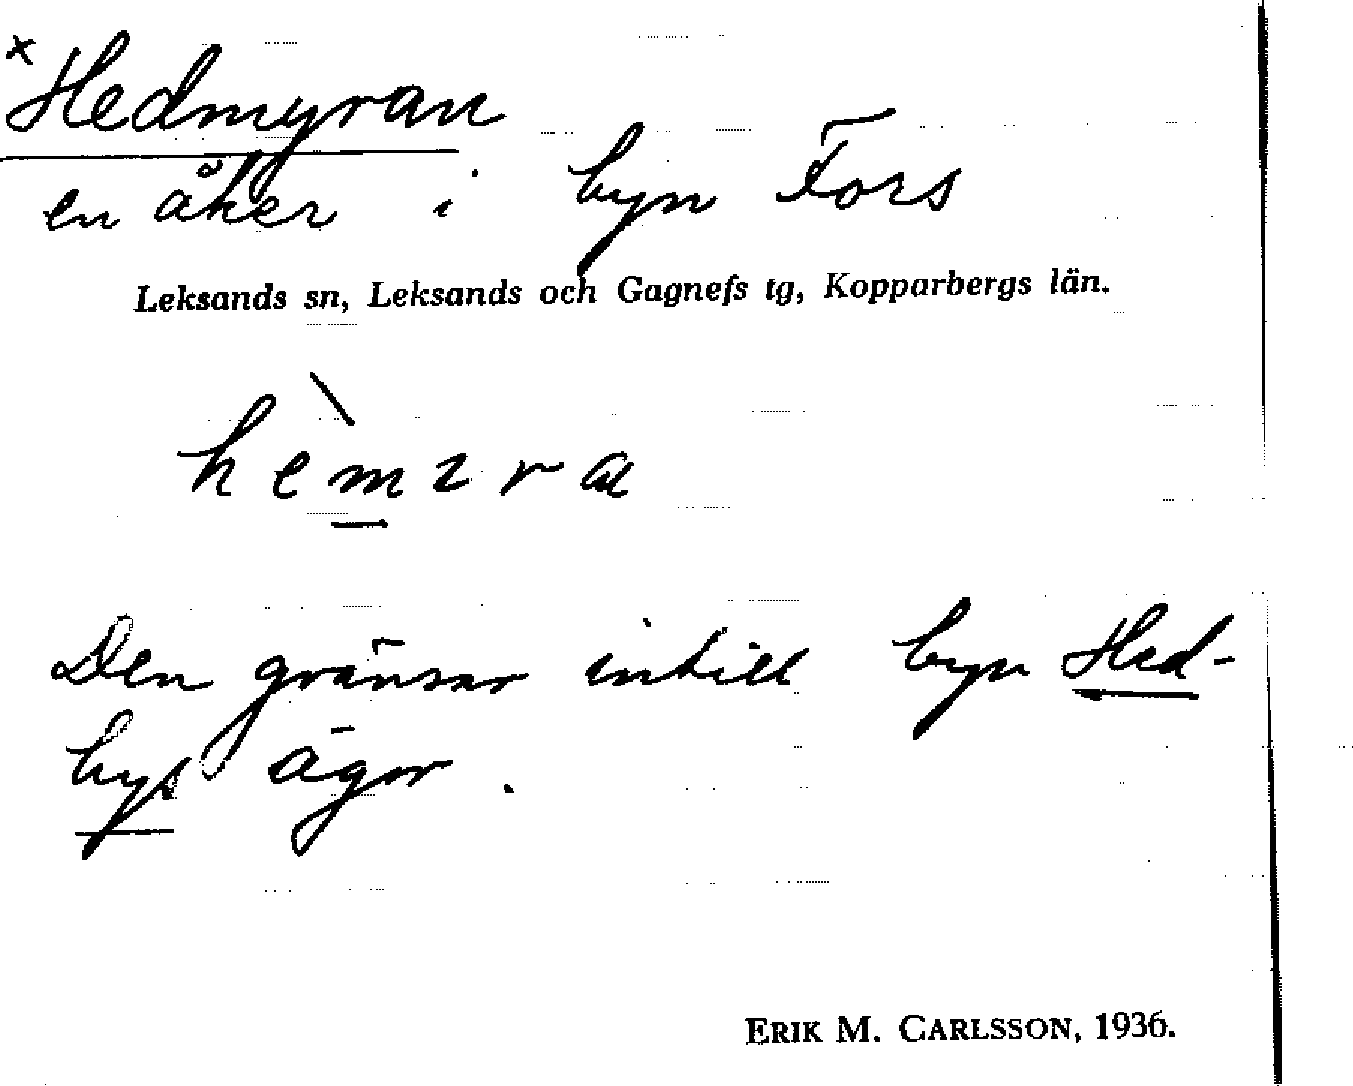 x Hedmyran
en åker i byn Fors
Leksands sn, Leksands och Gagnefs tg, Kopparbergs län.
Den gränsar intill byn Hed-
bys ägor.
ERIK M. CARLSSON, 1936.